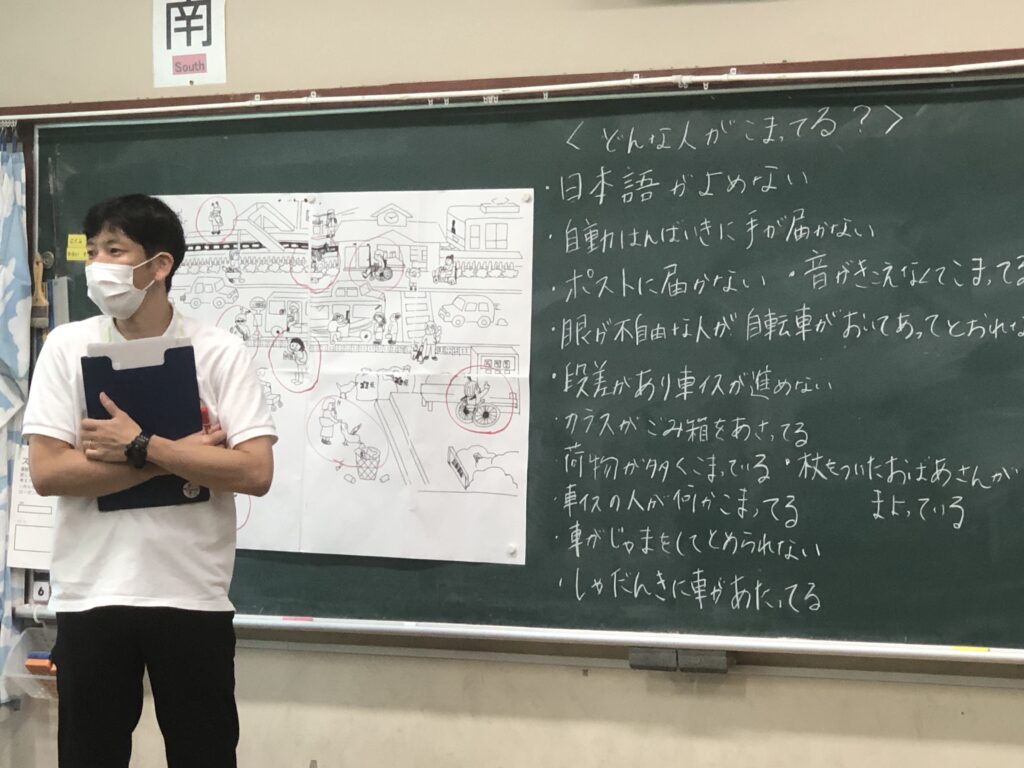 南
South
<どんな人がこまってる?>
・日本語がよめない
・自動はんばいきに手が届かない
・ポストに届かない ・音がきこえなくてこまってる
・眼が不自由な人が自転車がおいてあってとおれな
・段差があり車イスが進めない
・カラスがごみ箱をあさってる
荷物が多くこまっている ・杖をついたおばあさんが
まよっている
・車イスの人が何かこまってる
・車がじゃまをしてとめられない
・しゃだんきに車があたってる
6